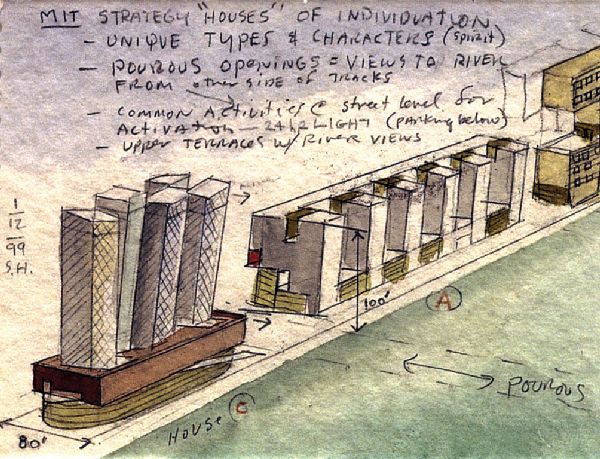 MIT STRATEGY "HOUSES" OF INDIVIDUATION
- UNIQUE TYPES & CHARACTERS (spirit)
- POUROUS OPENINGS = VIEWS TO RIVER
FROM other SIDE OF TRACKS
- COMMON ACTIVITIES @ street level for
ACTIVATION - 24 hr LIGHT (parking below)
- UPPER TERRACES w/ RIVER VIEWS
1
12
99
S.H.
100'
A
POUROUS
HOUSE C
80'